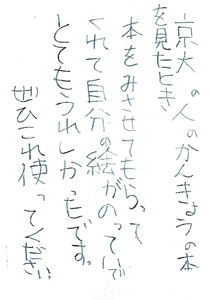 京大の人のかんきょうの本
を見たとき
本をみさせてもらって
くれて自分の絵がのっていて
とてもうれしかったです。
ぜひこれ使ってください